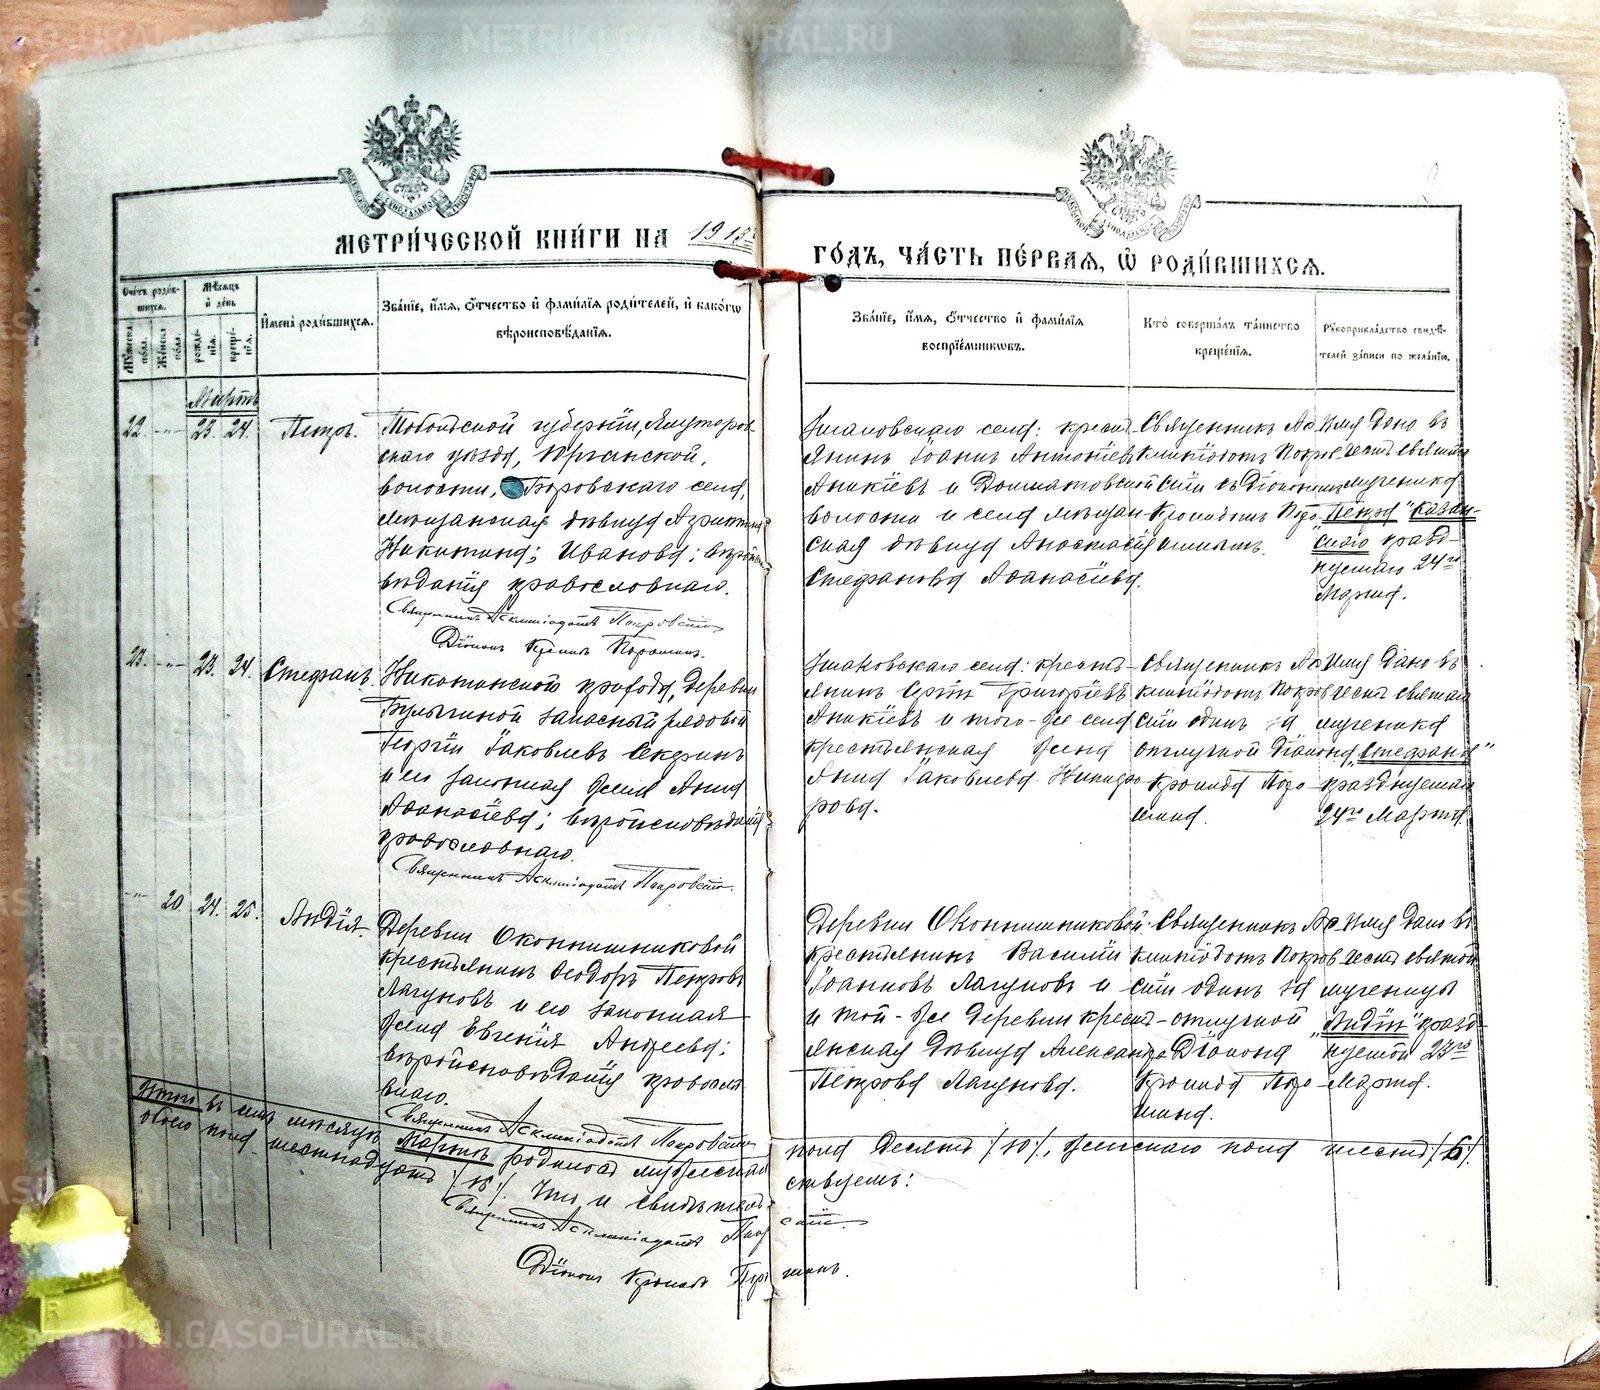 METRIKI.GASO-URAL.RU
МЕТРИ́ЧЕСКОЙ КНИ́ГИ НА 1913
ГО́ДЪ, ЧА́СТЬ ПЕ́РВАЯ, Ѿ РОДИ́ВШИХСЯ.
Сче́тъ роди́в-
шихся.
Му́жеска
по́ла.
Же́нска
пола.
Мѣ́сяцъ
и́ де́нь
рожде́-
нія.
креще́-
нія.
И́мена роди́вшихся.
Зва́ніе, и́мя, о́тчество и́ фами́лія роди́телей, и́ како́гѡ
вѣроисповѣ́данія.
Зва́ніе, и́мя, о́тчество и́ фами́лія
воспріе́мниковъ.
Кто̀ соверша́лъ та́инство
креще́нія.
Рꙋкоприкла́дство свидѣ́-
телей за́писи по жела́нію.
Мартъ
22. -„- 23. 24. Петръ.
Тобольской губерніи, Ялуторов-
скаго уѣзда,
волости, Боровскаго села,
мѣщанская дѣвица
Никитина; Иванова;
вѣданія православнаго.
Священникъ Асклиподотъ Покровскій
Діаконъ Кронидъ
крест-
янинъ Іоаннъ Антоніевъ
Аникіевъ и Долматовской
волости и села мѣщан
ская дѣвица Анастасія
Стефанова Аѳанасіева.
Священникъ Ас
клиподотъ Покров
скій съ Діакономъ
Кронидомъ
Имя дано въ
честь святаго
мученика
„Петра" казан-
скаго празд-
нуемаго 24го
Марта.
23. -„- 23. 24. Стефанъ.
Никитинскаго прихода, деревни
Булыгиной запасный рядовой
Георгій Іаковлевъ Секринъ
и его законная жена Анна
Аѳанасіева; вѣроисповѣданія
православнаго.
Священникъ Асклиподотъ Покровскій.
крест-
янинъ Григоріевъ
Аникіевъ и того-же села
крестьянская жена
Анна Іаковлева Никифо
рова.
Священникъ Ас
клиподотъ Покров
скій одинъ за
отлучкой Діакона
Кронида
Имя дано въ
честь святаго
мученика
„Стефана"
празднуемаго
24го Марта.
-„- 20. 24. 25. Лидія.
Деревни Оконишниковой
крестьянинъ Ѳеодоръ Петровъ
Лагуновъ и его законная
жена Евгенія Андреева;
вѣроисповѣданія правосла
внаго.
Священникъ Асклиподотъ Покровскій
Деревни Оконишниковой
крестьянинъ Василій
Іоанновъ Лагуновъ и
и той-же деревни крест-
янская дѣвица Александра
Петрова Лагунова.
Священникъ Ас
клиподотъ Покров
скій одинъ за
отлучкой
Діакона
Кронида
Имя дано въ
честь святой
мученицы
„Лидіи" празд-
нуемой 23го
Марта.
Итого въ семъ мѣсяцѣ Мартѣ родилось мужескаго
пола десять /10/, женскаго пола шесть /6/
обоего пола шестнадцать /16/. Что и свидѣтель-
ствуемъ:
Священникъ Асклиподотъ Пок
скій.
Діаконъ Кронидъ
METRIKI.GASO-URAL.RU